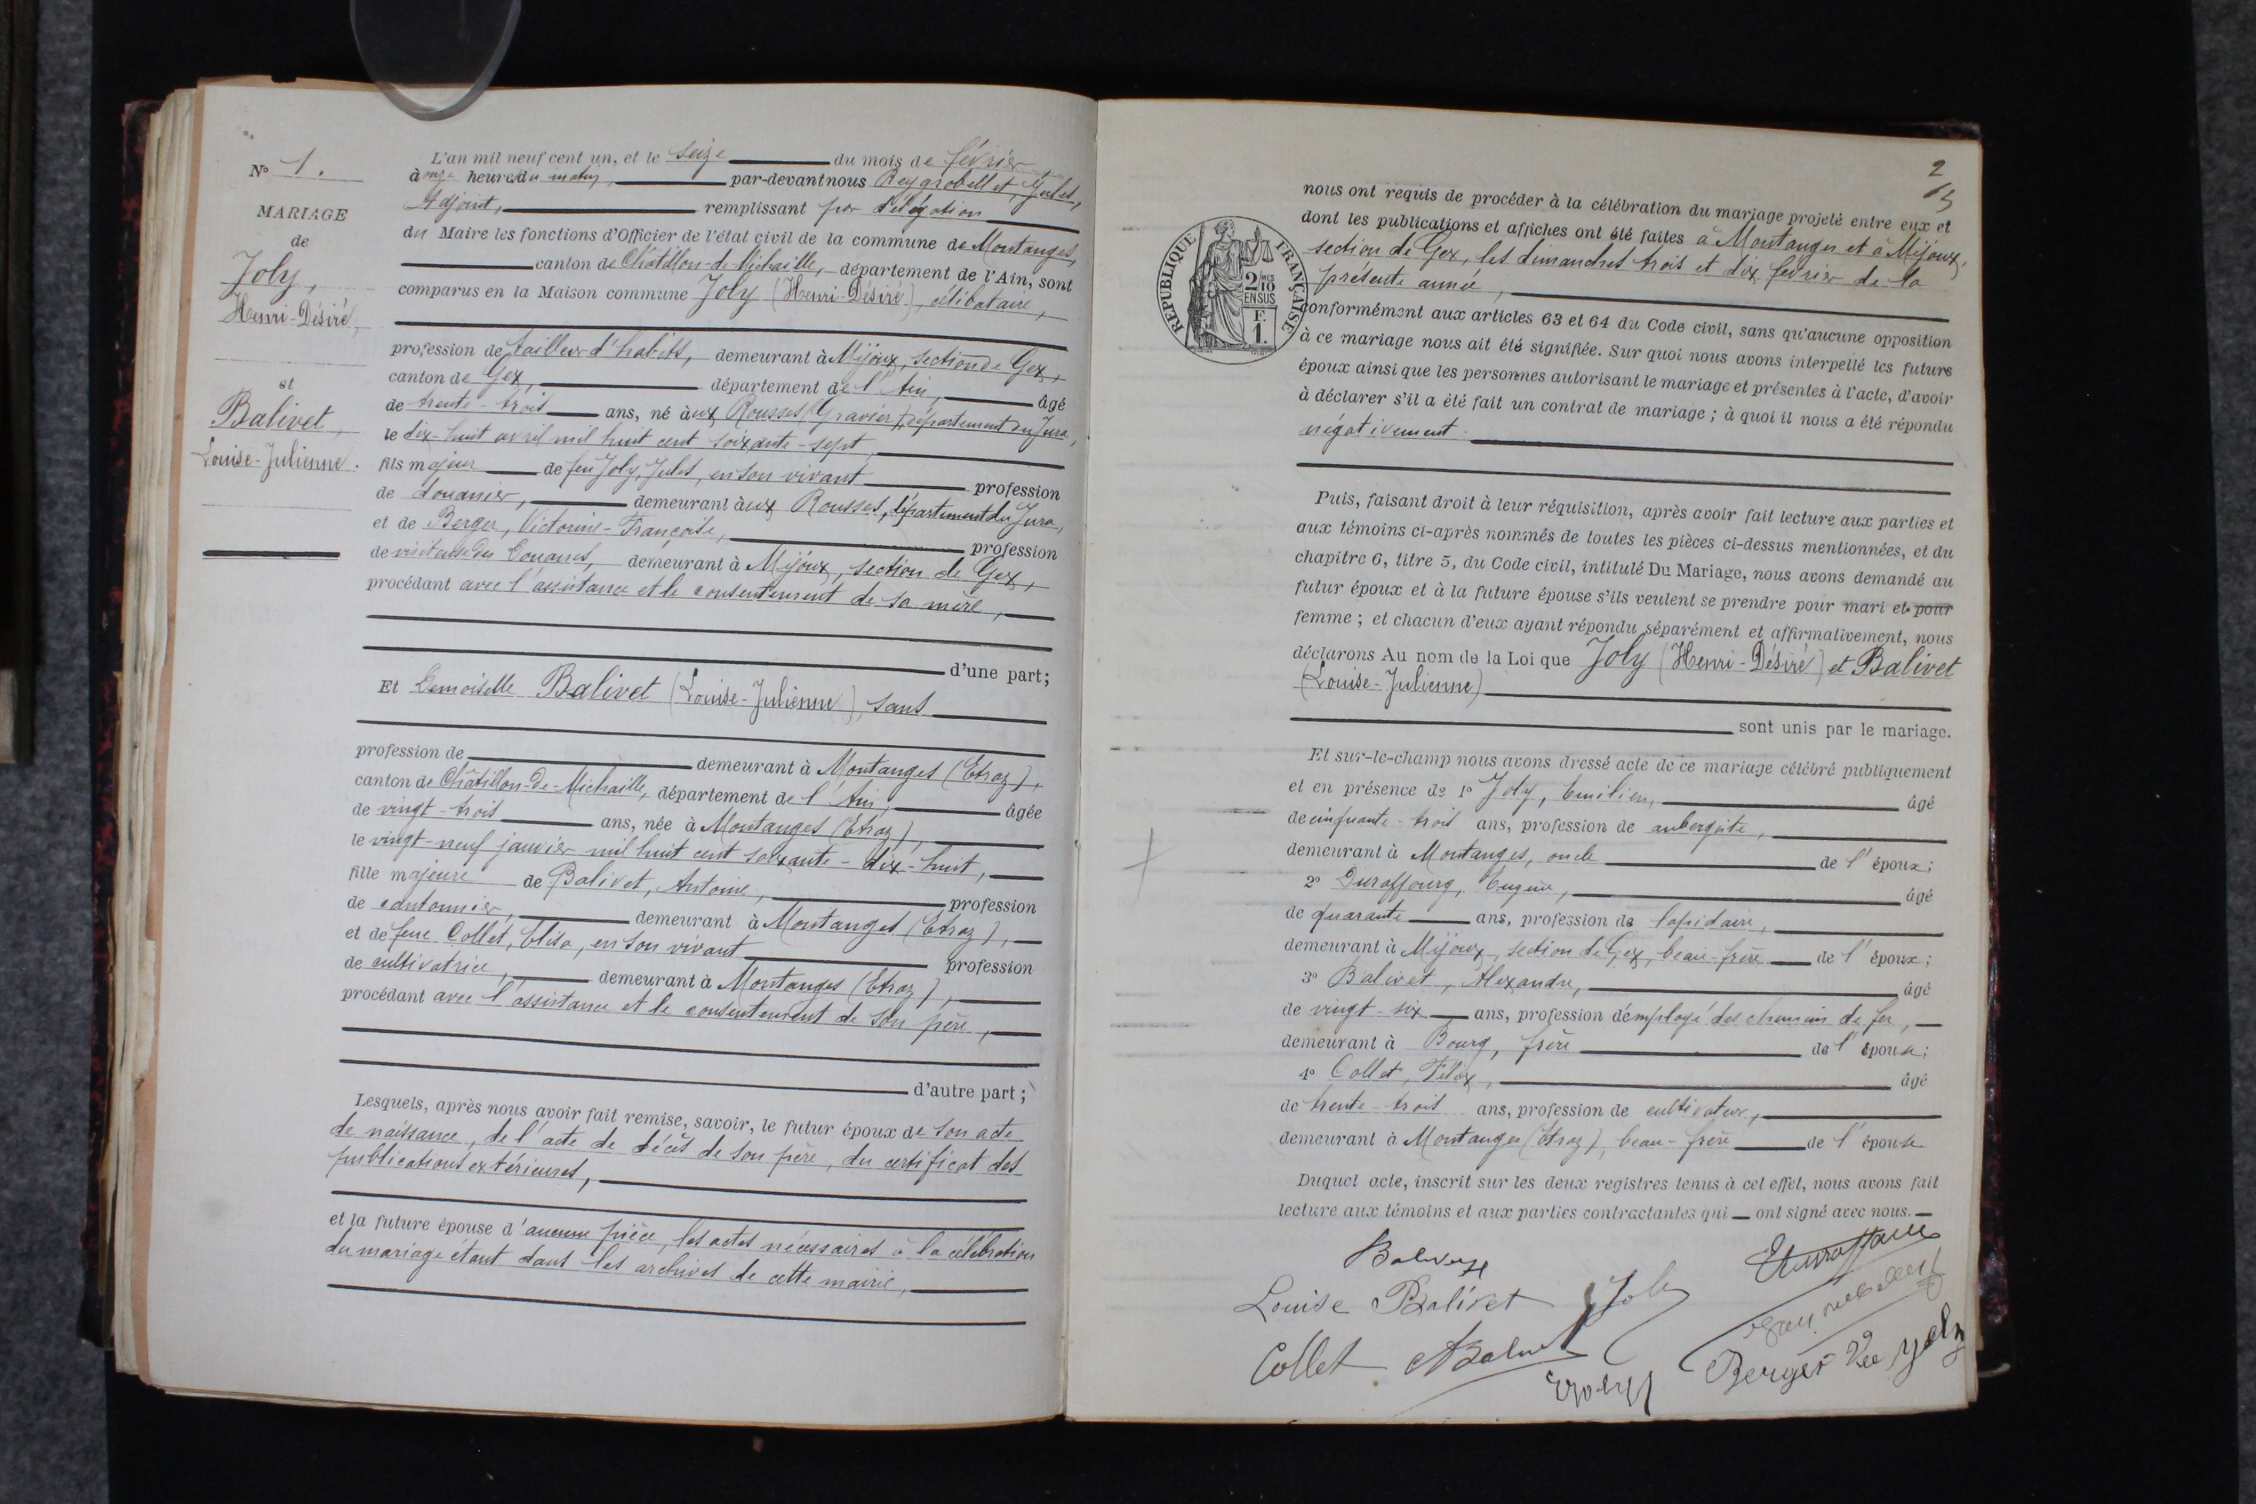 N° 1.
MARIAGE
de
Joly,
Henri-Désiré,
et
Balivet,
Louise-Julienne.
L'an mil neuf cent un, et le seize du mois de février,
à onze heures du matin, par-devant nous Reygrobellet, Jules,
Adjoint, remplissant par délégation
du Maire les fonctions d'Officier de l'état civil de la commune de Montanges,
canton de Châtillon-de-Michaille, département de l'Ain, sont
comparus en la Maison commune Joly (Henri-Désiré), célibataire,
profession de tailleur d'habits, demeurant à Mijoux, section de Gex,
canton de Gex, département de l'Ain, âgé
de trente-trois ans, né aux Rousses (Gravier), département du Jura,
le dix-huit avril mil huit cent soixante-sept,
fils majeur de feu Joly, Jules, en son vivant profession
de douanier, demeurant aux Rousses, département du Jura,
et de Berger, Victorine-Françoise, profession
de visiteuse des Douanes, demeurant à Mijoux, section de Gex,
procédant avec l'assistance et le consentement de sa mère,
d'une part;
Et Demoiselle Balivet (Louise-Julienne), sans
profession de demeurant à Montanges (Etraz),
canton de Châtillon-de-Michaille, département de l'Ain, âgée
de vingt-trois ans, née à Montanges (Etraz)
le vingt-neuf janvier mil huit cent soixante-dix-huit,
fille majeure de Balivet, Antoine, profession
de cantonnier, demeurant à Montanges (Etraz),
et de feue Collet, Elisa, en son vivant profession
de cultivatrice, demeurant à Montanges (Etraz),
procédant avec l'assistance et le consentement de son père,
d'autre part;
Lesquels, après nous avoir fait remise, savoir, le futur époux de son acte
de naissance, de l'acte de décès de son père, du certificat des
publications extérieures,
et la future épouse d'aucune pièce, les actes nécessaires à la célébration
du mariage étant dans les archives de cette mairie,
2
RÉPUBLIQUE FRANÇAISE
2/10
EN SUS
F.
1.
nous ont requis de procéder à la célébration du mariage projeté entre eux et
dont les publications et affiches ont été faites à Montanges et à Mijoux,
section de Gex, les dimanches trois et dix février de la
présente année,
conformément aux articles 63 et 64 du Code civil, sans qu'aucune opposition
à ce mariage nous ait été signifiée. Sur quoi nous avons interpellé les futurs
époux ainsi que les personnes autorisant le mariage et présentes à l'acte, d'avoir
à déclarer s'il a été fait un contrat de mariage; à quoi il nous a été répondu
négativement.
Puis, faisant droit à leur réquisition, après avoir fait lecture aux parties et
aux témoins ci-après nommés de toutes les pièces ci-dessus mentionnées, et du
chapitre 6, titre 5, du Code civil, intitulé Du Mariage, nous avons demandé au
futur époux et à la future épouse s'ils veulent se prendre pour mari et pour
femme; et chacun d'eux ayant répondu séparément et affirmativement, nous
déclarons Au nom de la Loi que Joly (Henri-Désiré) et Balivet
(Louise-Julienne)
sont unis par le mariage.
Et sur-le-champ nous avons dressé acte de ce mariage célébré publiquement
et en présence de 1° Joly, Emilien, âgé
de cinquante-trois ans, profession de aubergiste,
demeurant à Montanges, oncle de l'époux;
2° Duraffourg, Eugène, âgé
de quarante ans, profession de lapidaire,
demeurant à Mijoux, section de Gex, beau-frère de l'époux;
3° Balivet, Alexandre, âgé
de vingt-six ans, profession d'employé des chemins de fer,
demeurant à Bourg, frère de l'épouse;
4° Collet, Félix, âgé
de trente-trois ans, profession de cultivateur,
demeurant à Montanges (Etraz), beau-frère de l'épouse
Duquel acte, inscrit sur les deux registres tenus à cet effet, nous avons fait
lecture aux témoins et aux parties contractantes qui ont signé avec nous.
Balivet
Louise Balivet Joly
Collet ABalivet
Berger Vve Joly